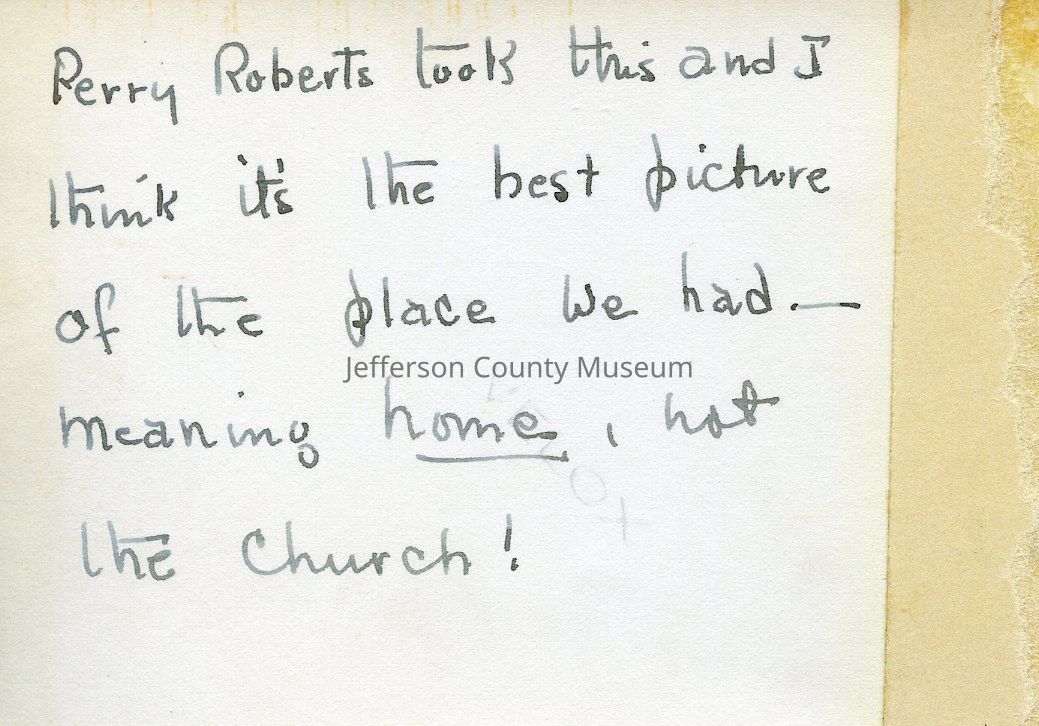 Perry Roberts took this and I
think it's the best picture
of the place we had —
Jefferson County Museum
meaning home, not
the church!